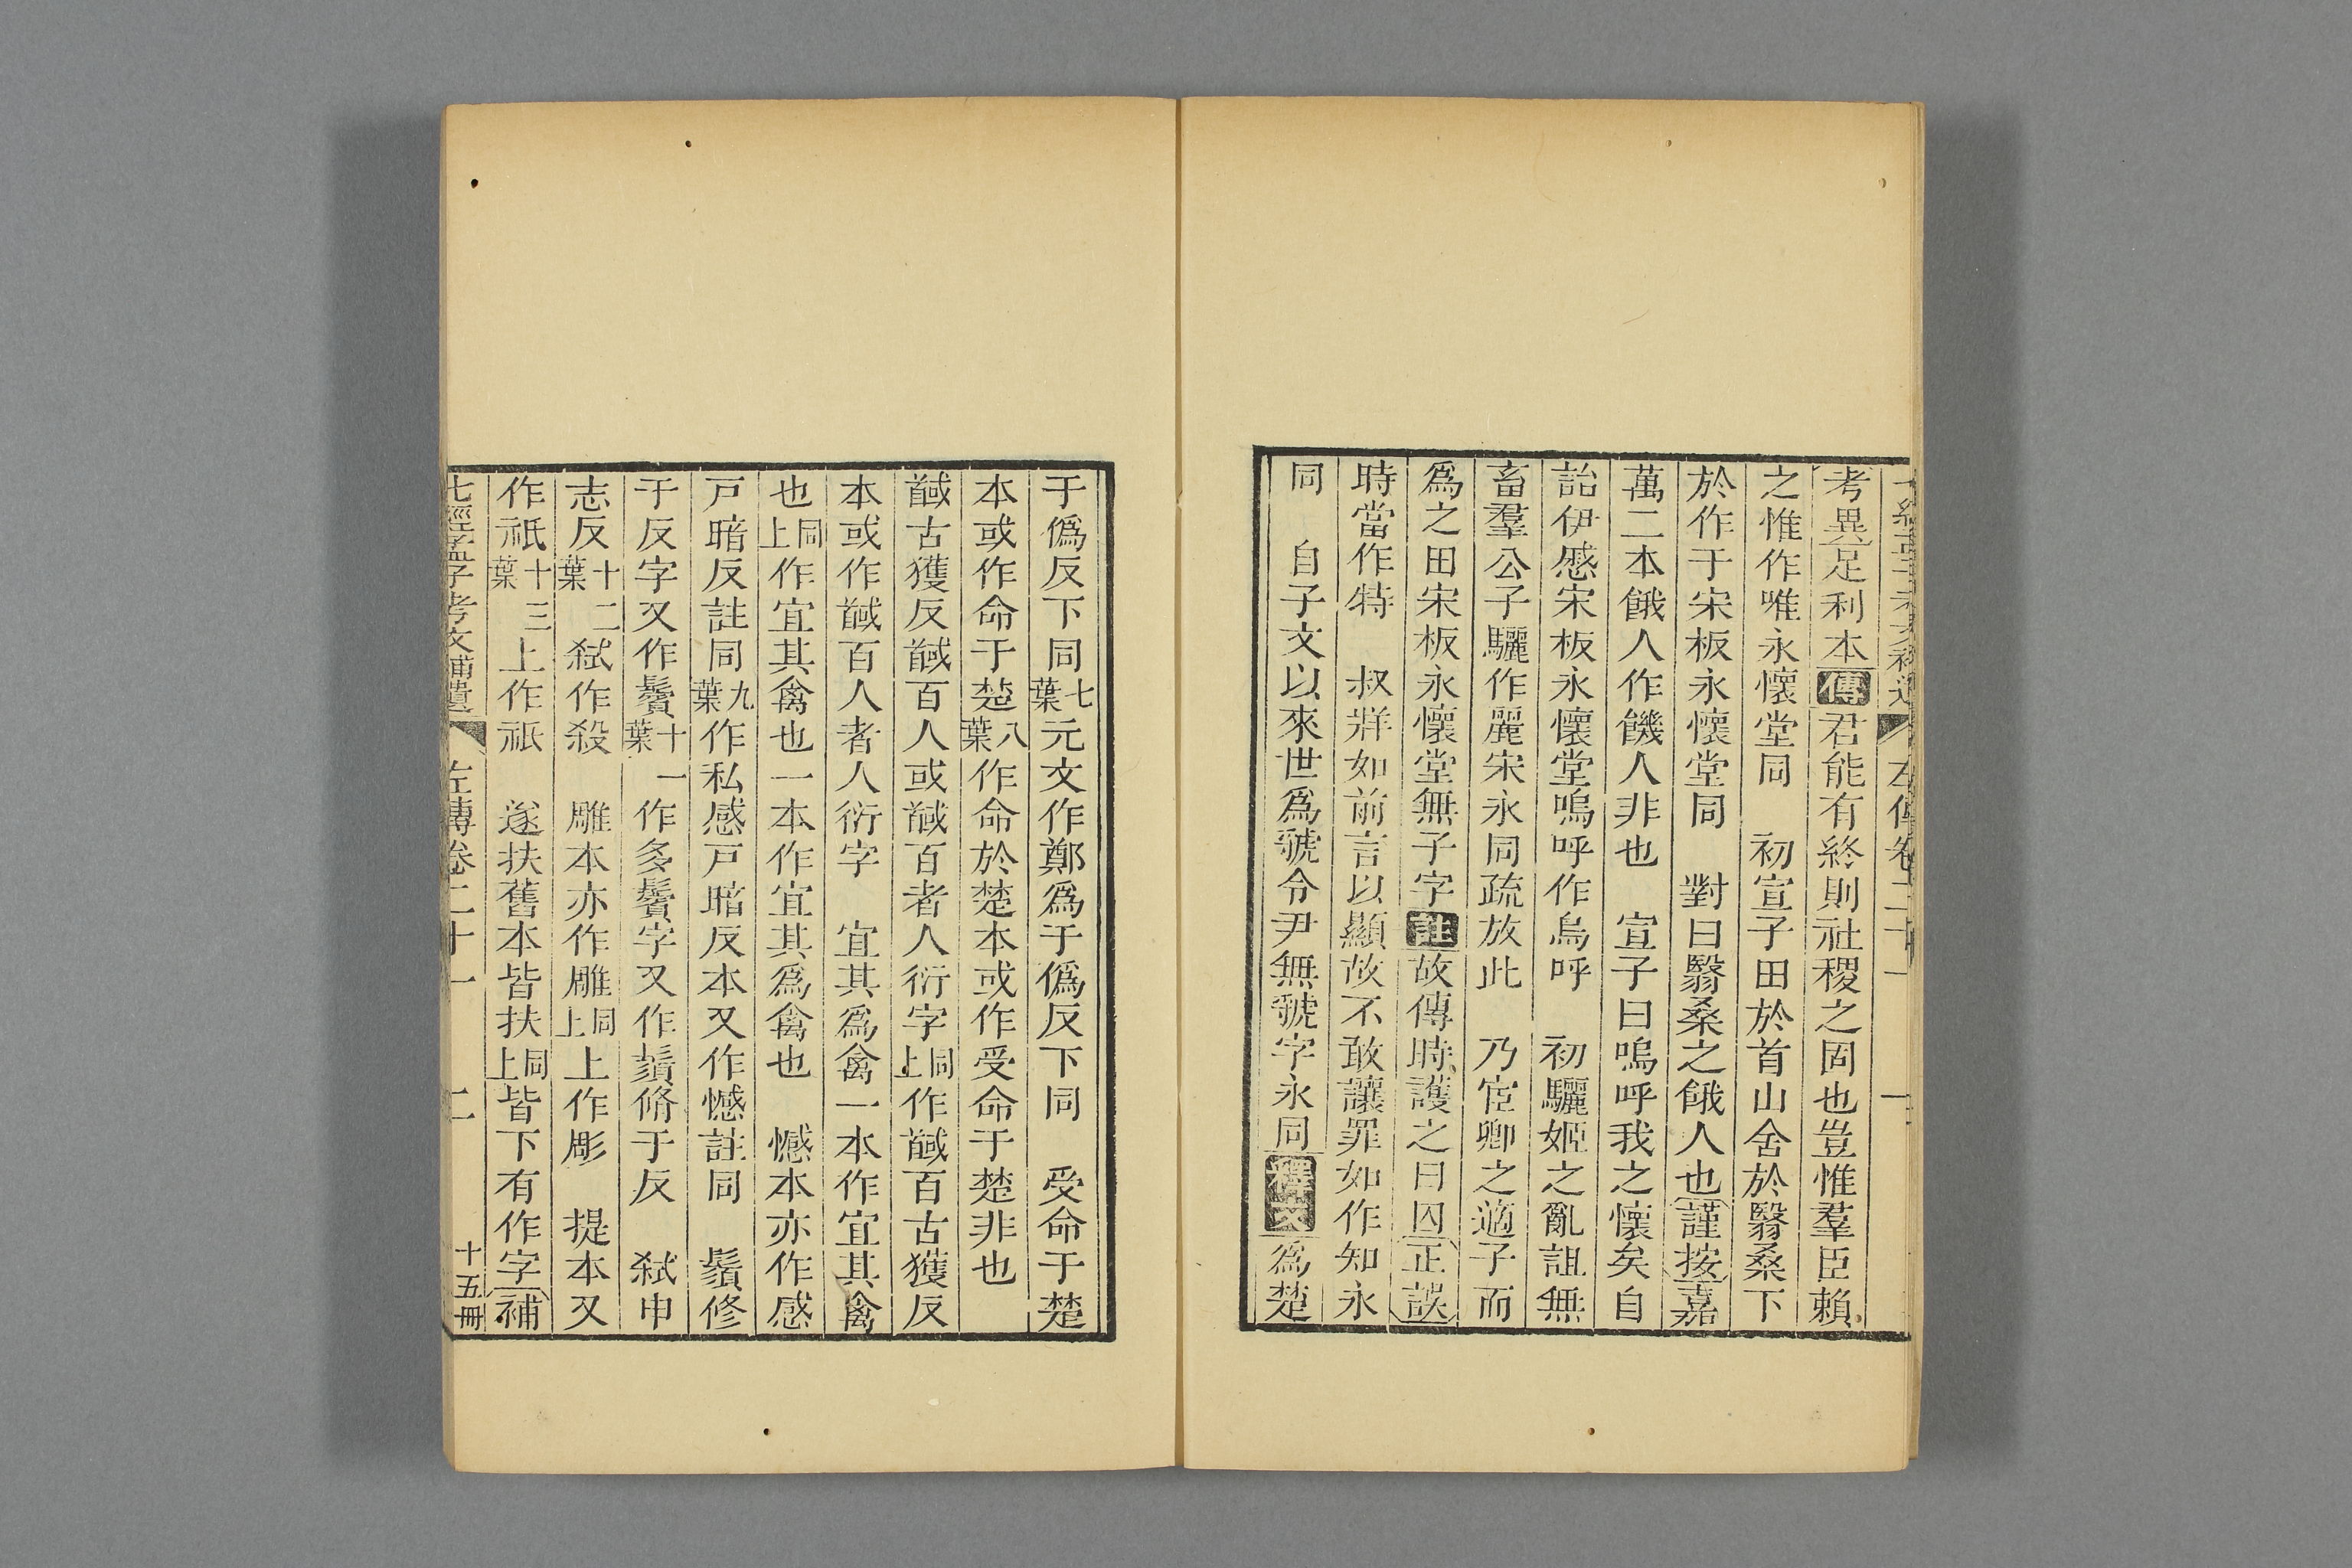 考異足利本傳君能有終則社稷之固也豈惟羣臣賴
之惟作唯永懷堂同　初宣子田於首山舍於翳桑下
於作于宋板永懷堂同　對曰翳桑之餓人也謹按嘉
萬二本餓人作饑人非也　宣子曰嗚呼我之懷矣自
詒伊慼宋板永懷堂嗚呼作烏呼　初驪姬之亂詛無
畜羣公子驪作麗宋永同疏放此　乃宦卿之適子而
爲之田宋板永懷堂無子字註故傳時護之曰囚正誤
時當作特　叔牂如前言以顯故不敢讓罪如作知永
同　自子文以來世爲號令尹無號字永同釋文爲楚
于僞反下同七葉元文作鄭爲于僞反下同　受命于楚
本或作命于楚八葉作命於楚本或作受命于楚非也
馘古獲反馘百人或馘百者人衍字同上作馘百古獲反
本或作馘百人者人衍字　宜其爲禽一本作宜其禽
也同上作宜其禽也一本作宜其爲禽也　憾本亦作感
戸暗反註同九葉作私感戸暗反本又作憾註同　鬚修
于反字又作鬢十一葉作多鬢字又作鬚脩于反　弑申
志反十二葉弑作殺　雕本亦作雕同上上作彫　提本又
作祇十三葉上作祇　遂扶舊本皆扶同上皆下有作字補
七經孟子考文補遺　左傳卷二十一　二　十五冊